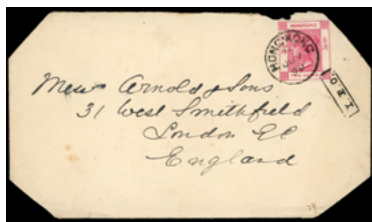 HONG KONG
HONGKONG
Messrs Arnold & Sons
31 West Smithfield
London EC
England